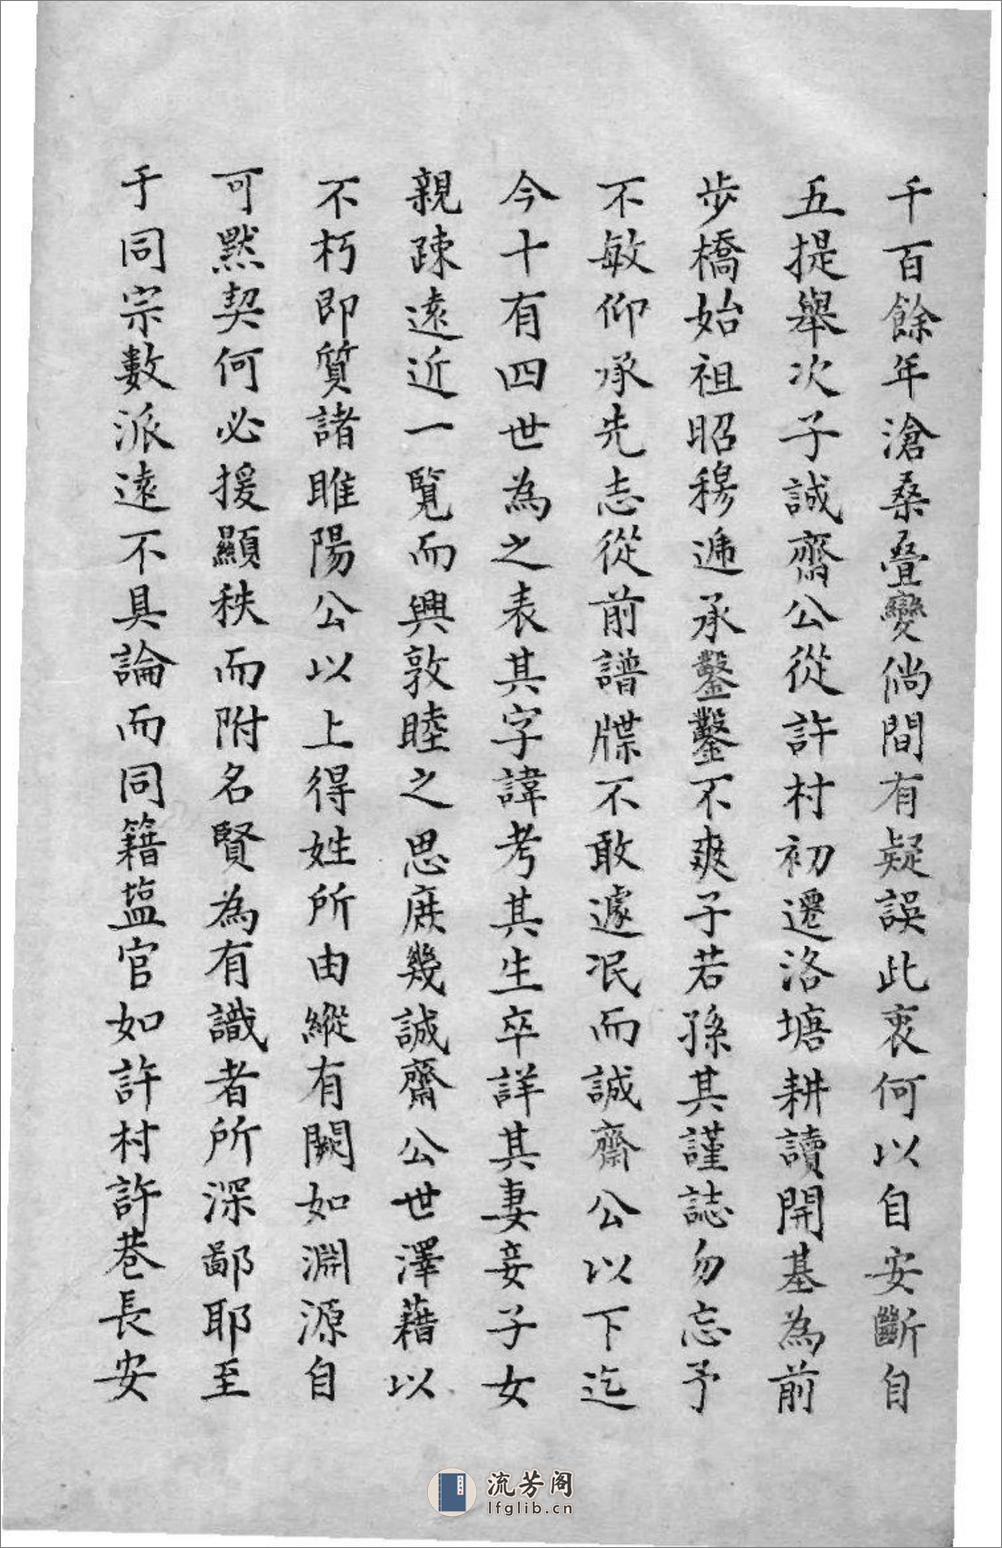 千百餘年滄桑疊變倘間有疑誤此衷何以自安斷自
五提舉次子誠齋公從許村初遷洛塘耕讀開基為前
步橋始祖昭穆遞承鑿鑿不爽子若孫其謹誌勿忘予
不敏仰承先志從前譜牒不敢遽泯而誠齋公以下迄
今十有四世為之表其字諱考其生卒詳其妻妾子女
親踈遠近一覧而興敦睦之思庶幾誠齋公世澤藉以
不朽即質諸睢陽公以上得姓所由縱有闕如淵源自
可黙契何必援顯秩而附名賢為有識者所深鄙耶至
于同宗數派遠不具論而同籍塩官如許村許巷長安
流芳阁
lfglib.cn